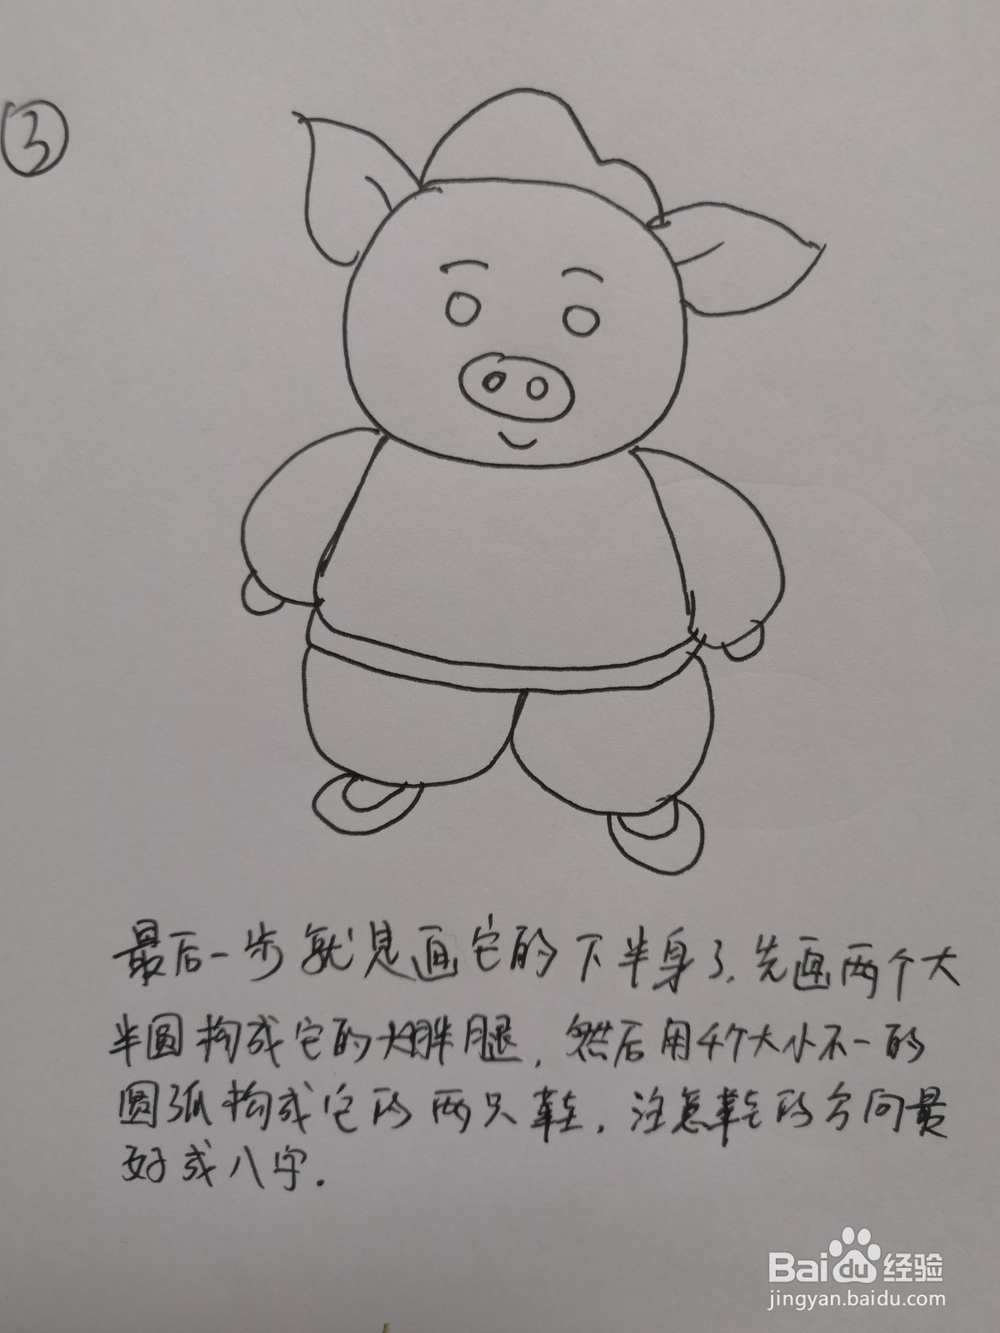 3
最后一步就是画它的下半身了.先画两个大
半圆构成它的大胖腿,然后用4个大小不一的
圆弧构成它的两只鞋,注意鞋的方向最
好成八字.
Baidu经验
jingyan.baidu.com